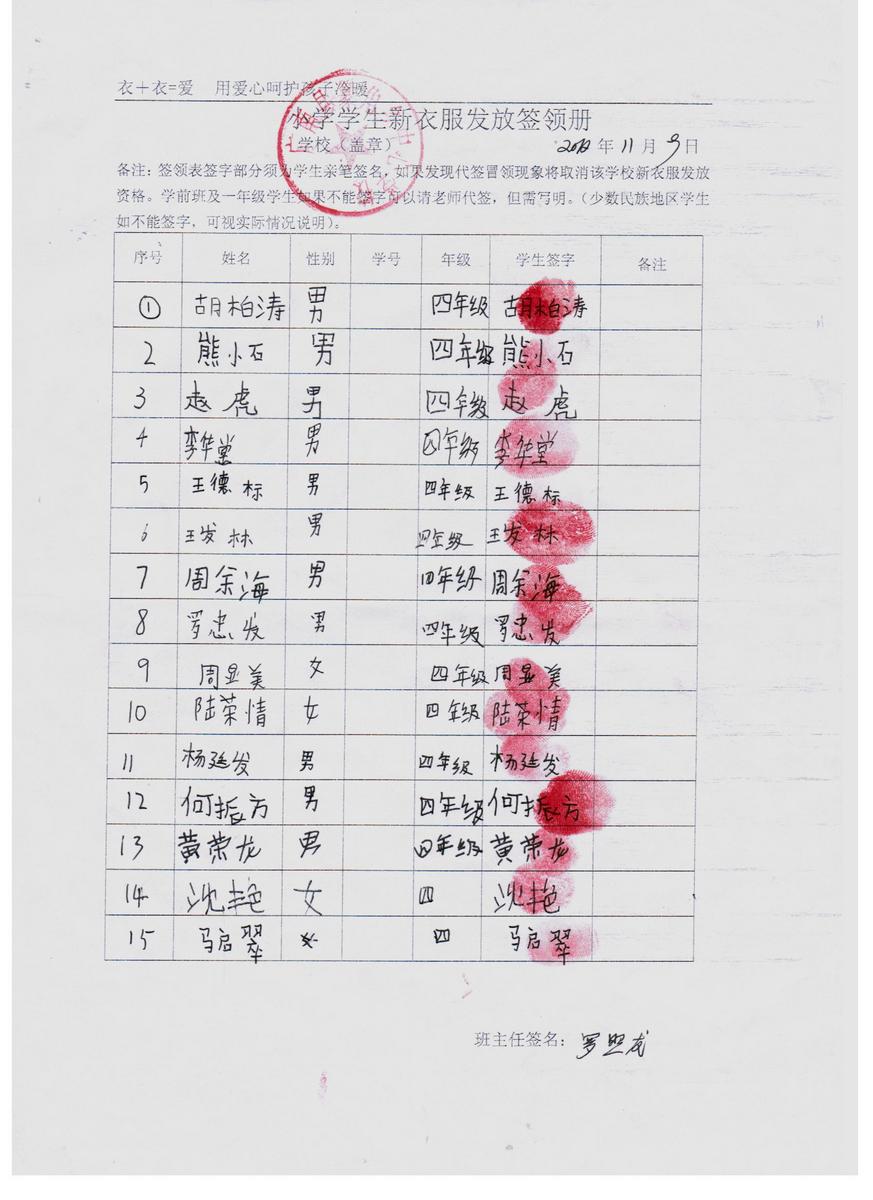 衣+衣=爱 用爱心呵护孩子冷暖
学学生新衣服发放签领册
学校（盖章） 年11月9日
备注：签领表签字部分须为学生亲笔签名，如果发现代签冒领现象将取消该学校新衣服发放
资格。学前班及一年级学生如果不能签字可以请老师代签，但需写明。（少数民族地区学生
如不能签字，可视实际情况说明）。
序号 姓名 性别 学号 年级 学生签字 备注
① 胡柏涛 男 四年级 胡柏涛
2 熊小石 男 四年级 熊小石
3 赵虎 男 四年级 赵虎
4 李华堂 男 四年级 李华堂
5 王德标 男 四年级 王德标
6 王发林 男 四年级 王发林
7 周余海 男 四年级 周余海
8 罗忠发 男 四年级 罗忠发
9 周显美 女 四年级 周显美
10 陆荣情 女 四年级 陆荣情
11 杨廷发 男 四年级 杨廷发
12 何振方 男 四年级 何振方
13 黄荣龙 男 四年级 黄荣龙
14 沈艳 女 四 沈艳
15 马启翠 女 四 马启翠
班主任签名：罗照龙